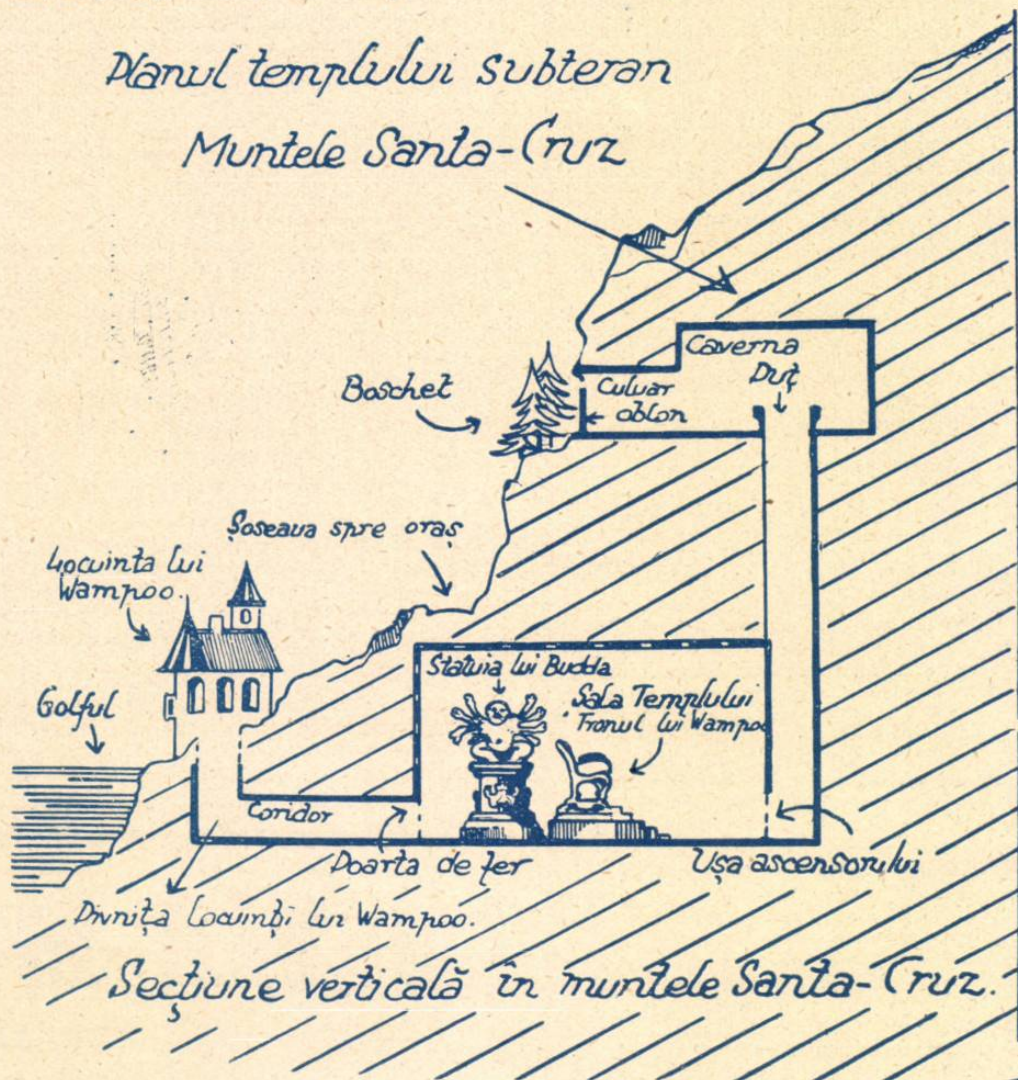 Planul templului subteran
Muntele Santa-Cruz
Caverna
Puț
Culuar
oblon
Boschet
Șoseaua spre oraș
Locuința lui
Wampoo.
Golful
Statuia lui Budda
Sala Templului
Tronul lui Wampoo
Coridor
Poarta de fer
Ușa ascensorului
Pivnița locuinți lui Wampoo.
Secțiune verticală în muntele Santa-Cruz.